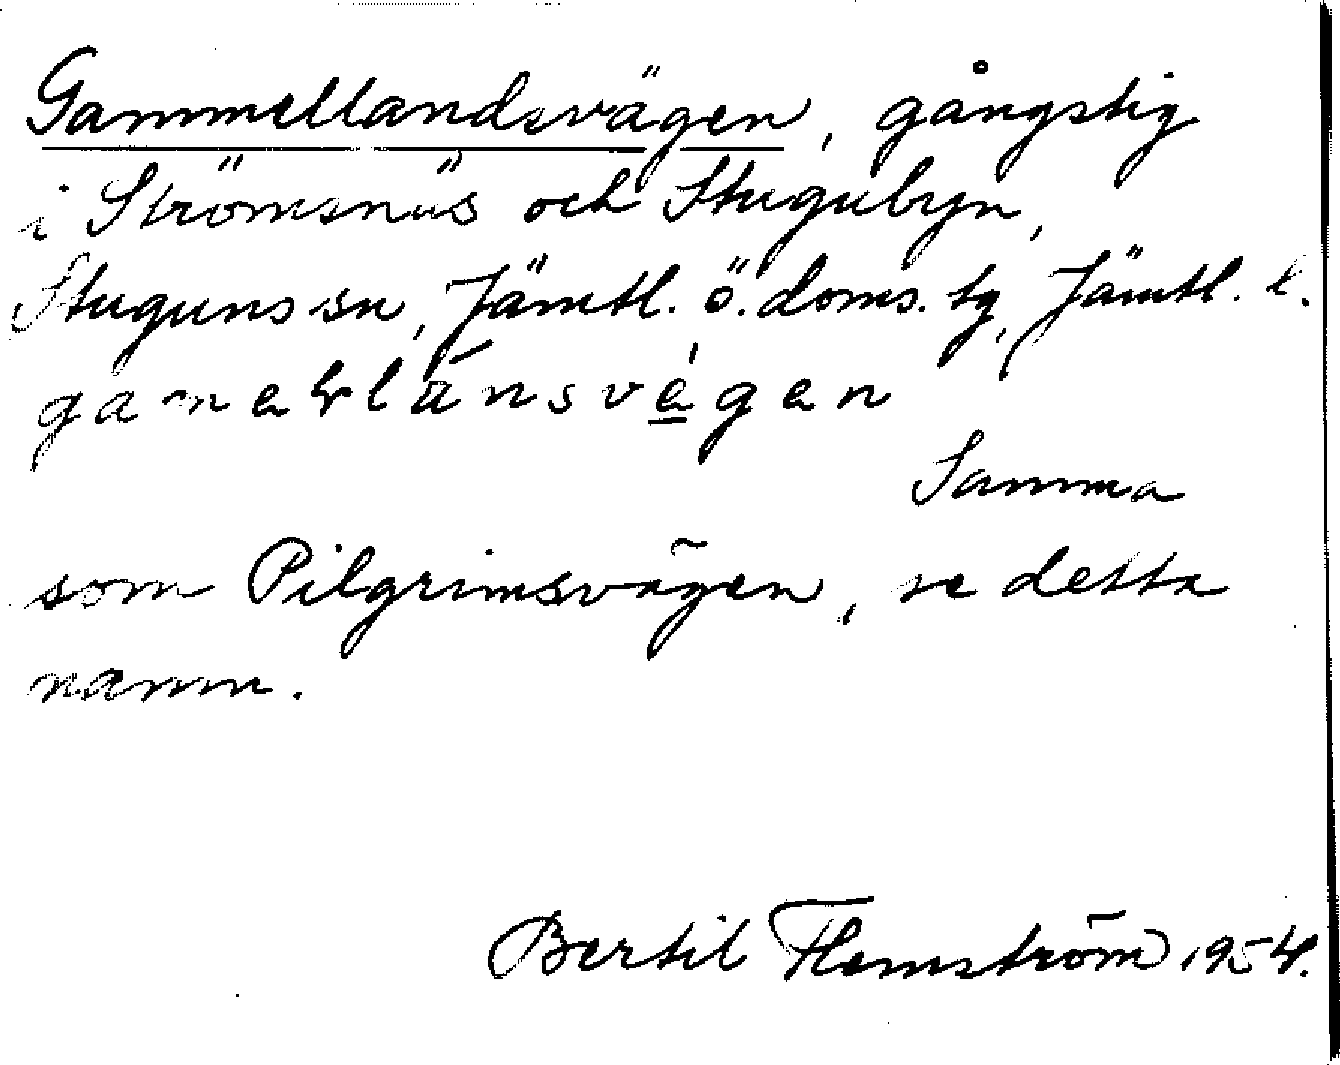 Gammellandsvägen, gångstig
i Strömsnäs och Stugubyn,
Stuguns sn, Jämtl. ö. doms. tg, Jämtl. l.
Samma
som Pilgrimsvägen, se detta
namn.
Bertil Flemström 1954.